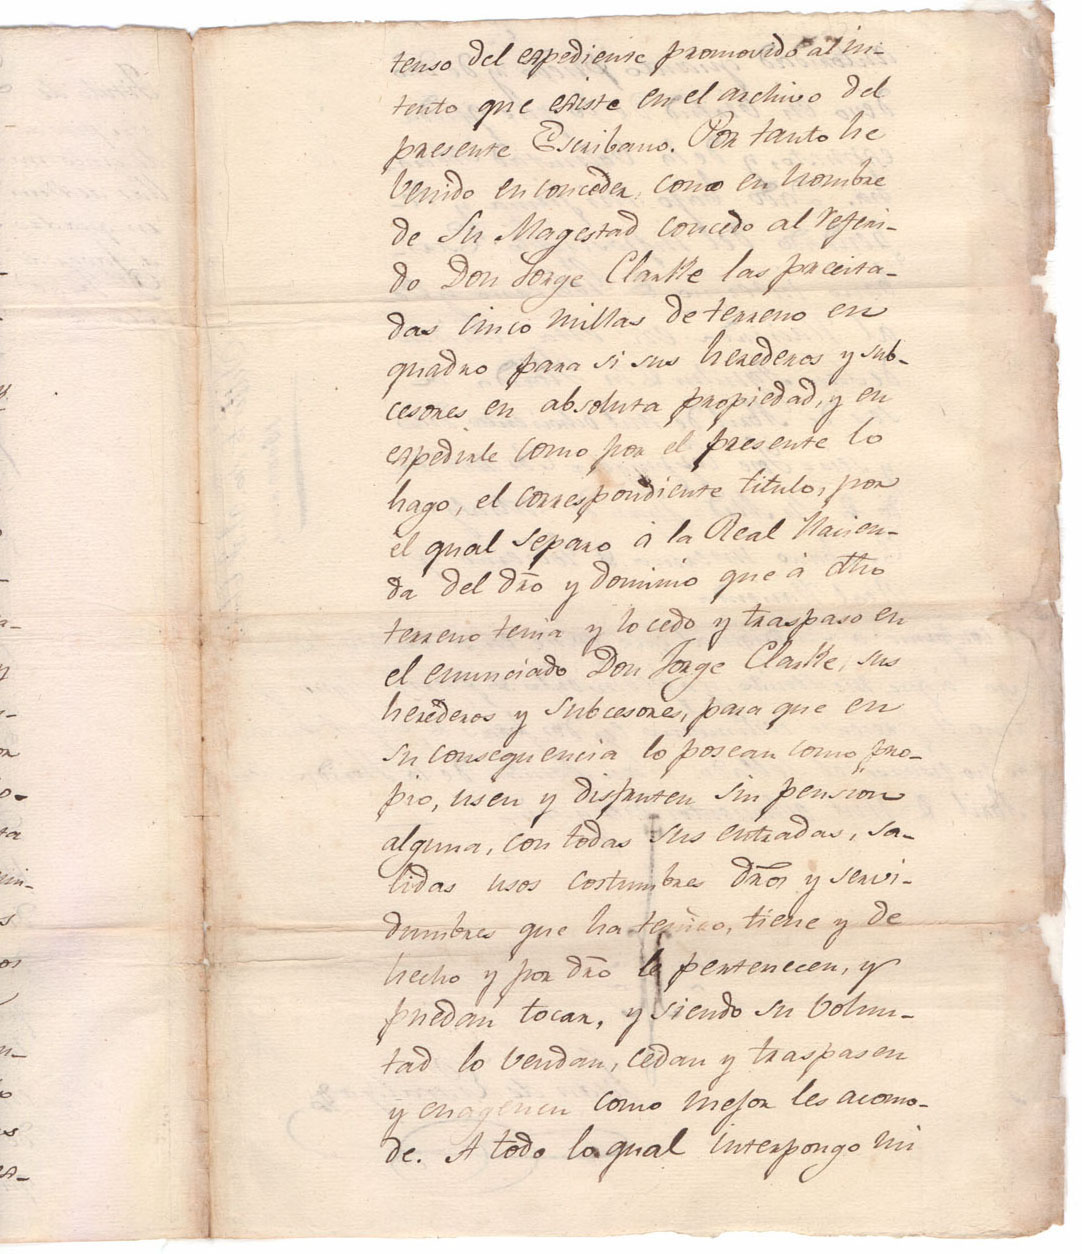 tenso del expediente promovido al in-
tento que existe en el archivo del
presente Escribano. Por tanto he
venido en conceder, como en Nombre
de Su Magestad concedo al referi-
do Don Jorge Clarke las precita-
das cinco millas de terreno en
quadro para si sus herederos y sub-
cesores en absoluta propiedad, y en
expedirle como por el presente lo
hago, el correspondiente titulo, por
el qual separo á la Real Hacien-
da del dro y dominio que á dho
terreno tenia y lo cedo y traspaso en
el enunciado Don Jorge Clarke, sus
herederos y subcesores, para que en
su consequencia lo posean como pro-
pio, usen y disfruten sin pension
alguna, con todas sus entradas, sa-
lidas usos costumbres dros y servi-
dumbres que ha tenido, tiene y de
hecho y por dro le pertenecen, y
puedan tocar, y siendo su volun-
tad lo vendan, cedan y traspasen
y enagenen como mejor les acomo-
de. A todo lo qual interpongo mi